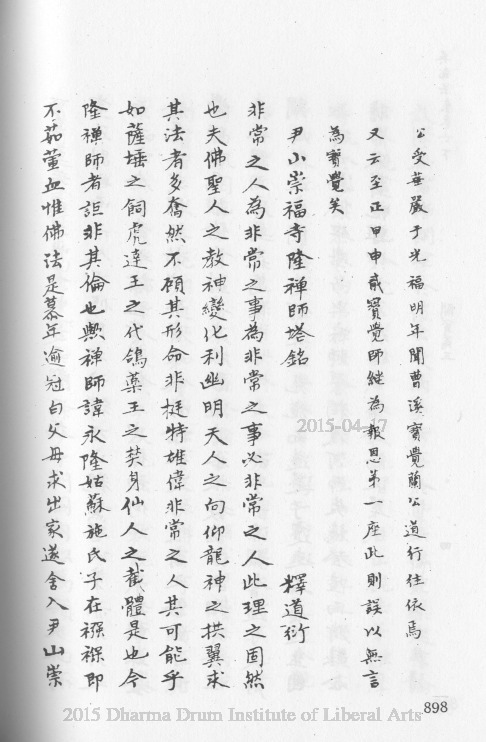 公受華嚴于光福明年聞曹溪寶覺蘭公道行往依焉
又云至正甲申貳寶覺師繼為報恩第一座此則誤以無言
為寶覺矣
尹山崇福寺隆禪師塔銘
釋道衍
非常之人為非常之事為非常之事必非常之人此理之固然
也夫佛聖人之教神變化利幽明天人之向仰龍神之拱翼求
其法者多奮然不頋其形命非挺特雄偉非常之人其可能乎
如薩埵之飼虎達王之代鴿藥王之焚身仙人之截體是也今
隆禪師者詎非其倫也歟禪師諱永隆姑蘇施氏子在襁褓即
不茹葷血惟佛法是慕年逾冠白父母求出家遂舍入尹山崇
898
2015-04-17
2015 Dharma Drum Institute of Liberal Arts